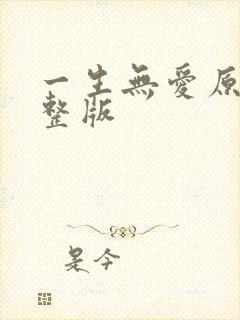 一生無愛原
整版
是今